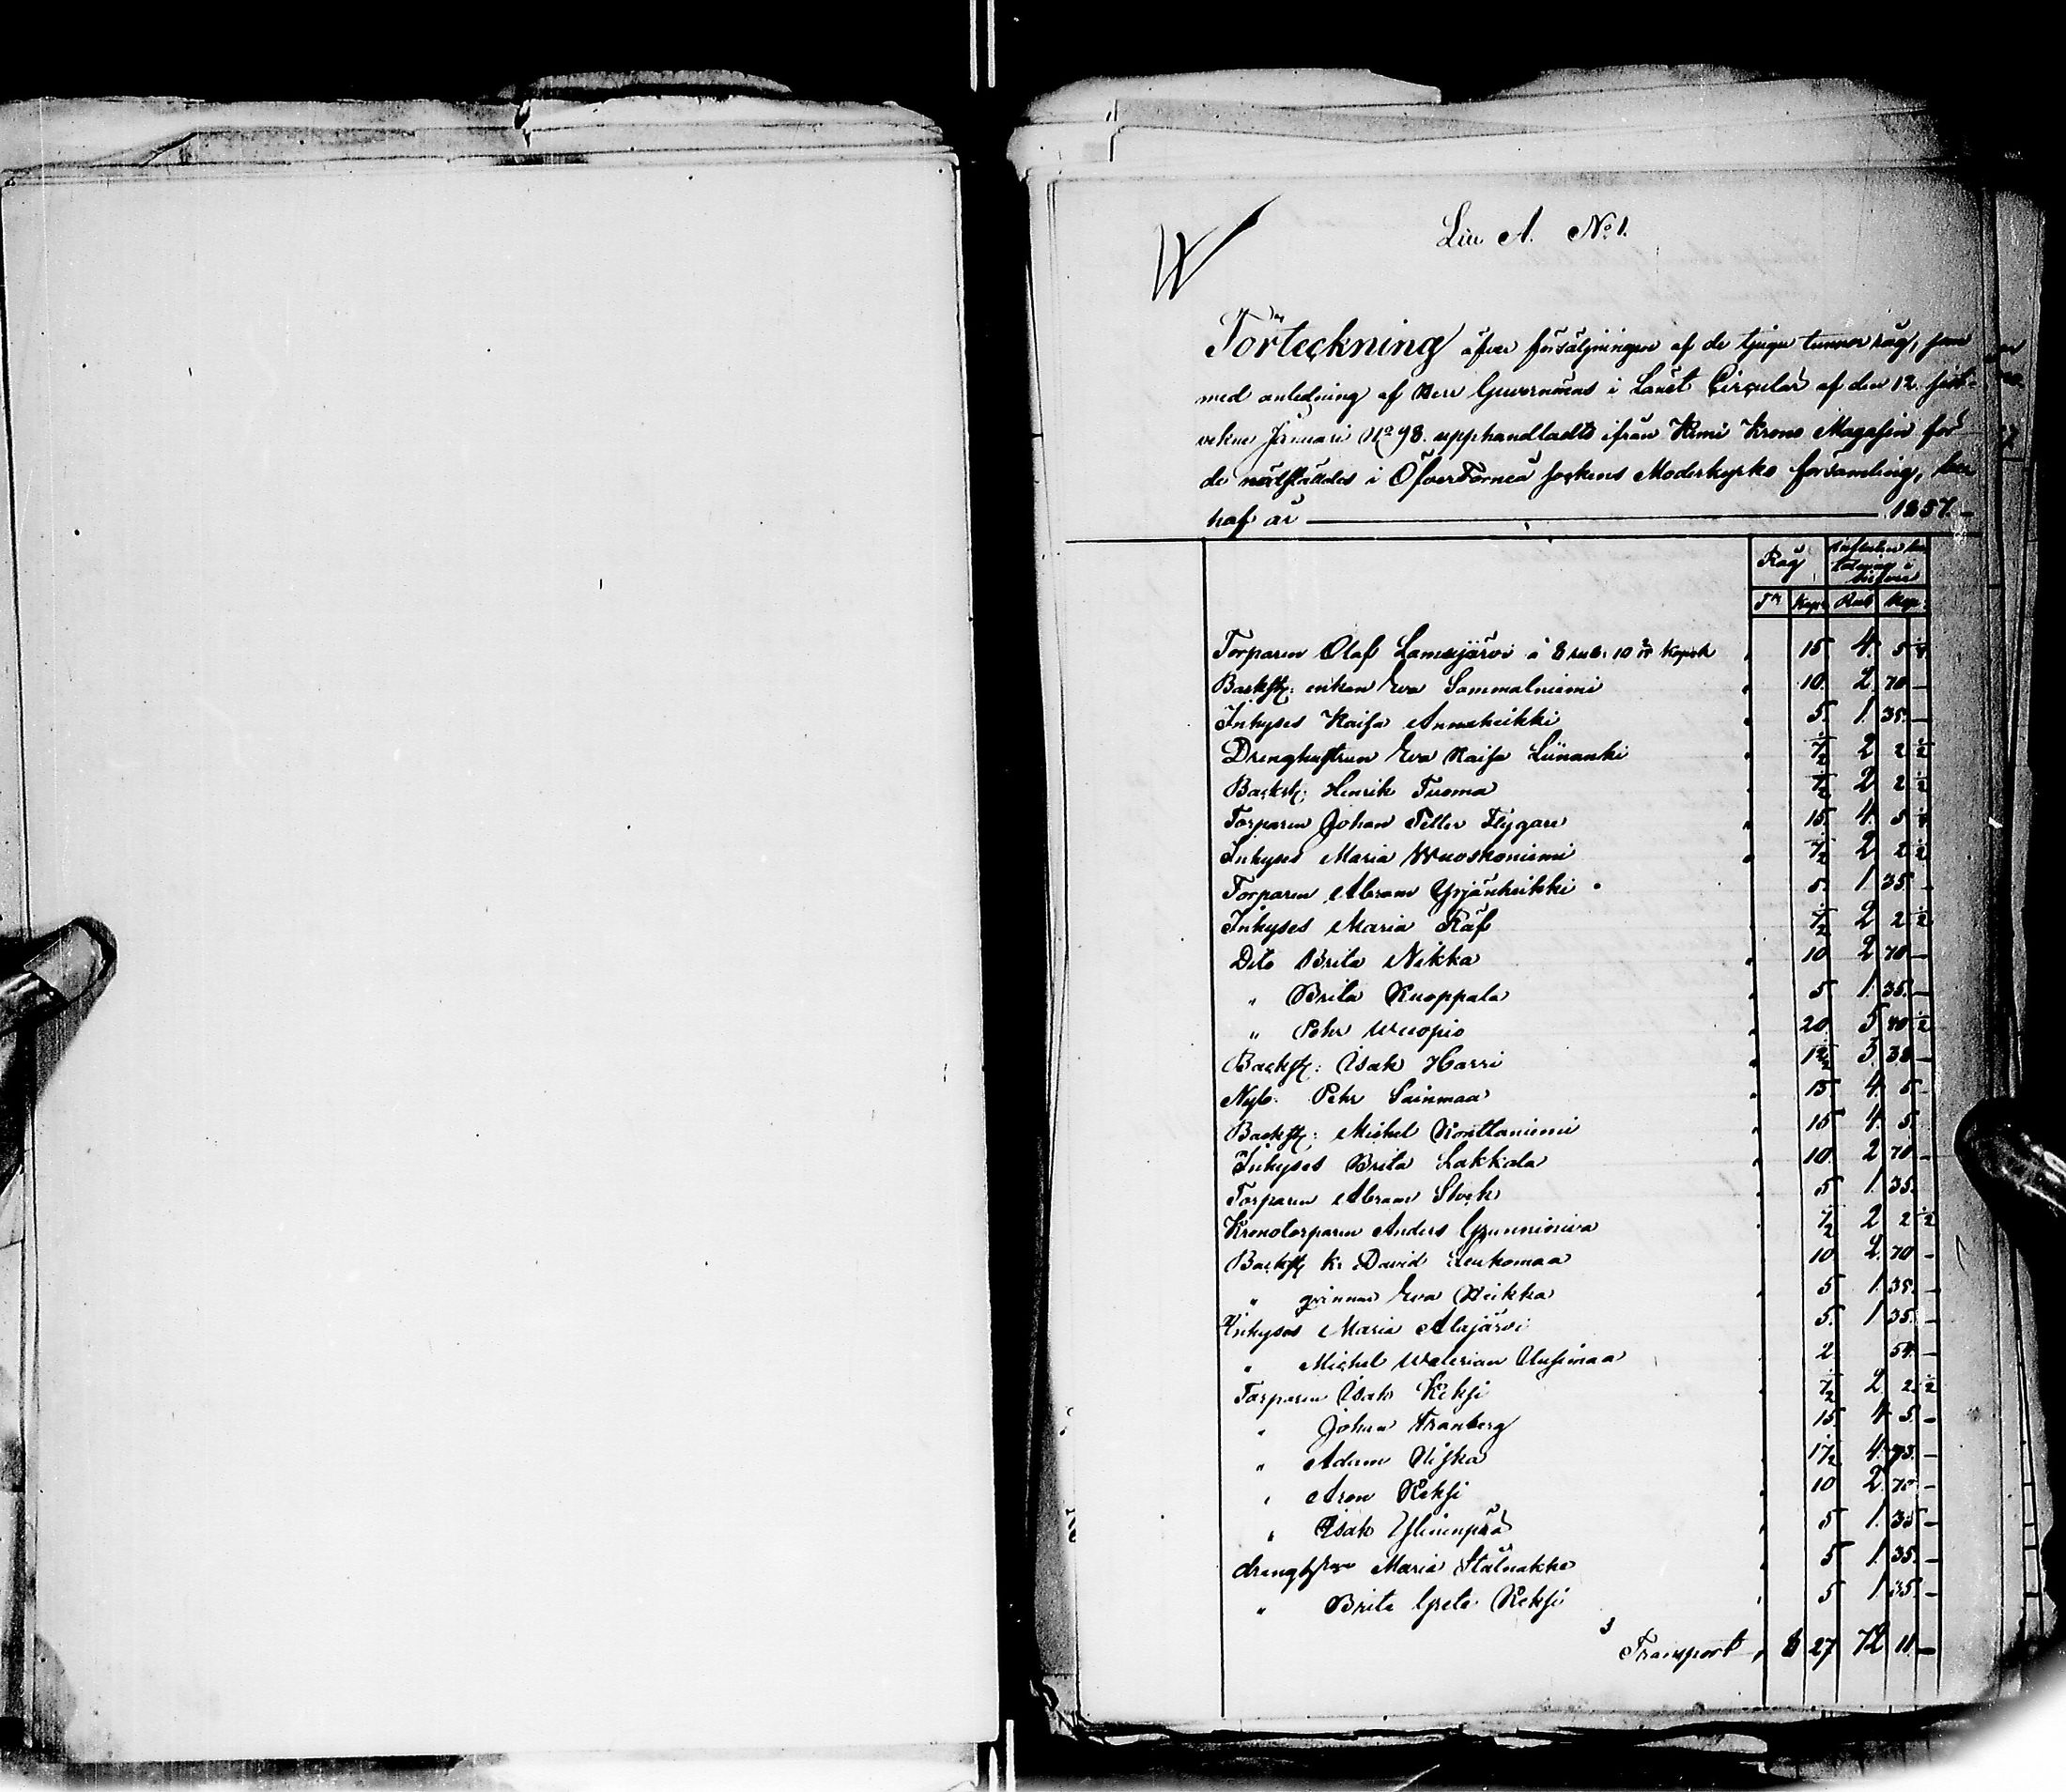 Litt A. No 1.
Förteckning öfver försäljningen af de tjugu tunnor råg, som
med anledning af Herr Guvernörens i Länet Circulär af den 12. sist-
vekne Januari No 98. upphandlats ifrån Kemi Krono Magasin för
de nödställdes i ÖfverTorneå sockens Moderkyrko församling,
1857. -
Råg
Tr Kapr Rub Kop.
Torparen Olaf Lamujärvi à 8 rub. 10 Kopek 15 4. 5
Backst: enkan Eva Sammalniemi 10. 2 70 -
Inhyses Kaisa Annaheikki 5. 1. 35. -
Drenghustrun Eva Kaisa Liinanki 7½ 2 2 ½
Backst: Henrik Tuoma 7½ 2 2 ½
Torparen Johan Petter Flygare 15. 4. 5
Inhyses Maria Wuoskoniemi 7½ 2 2 ½
Torparen Abram Yrjänheikki 5. 1 35 -
Inhyses Maria Räf 7½ 2 2 ½
Dito Brita Nikka 10 2 70 -
" Brita Kuoppala 5 1. 35. -
" Pehr Wuopio 20. 5 40 ½
Backst: Isak Harri 12½ 3. 38 -
Nyb. Pehr Sainmaa 15 4. 5 -
Backst: Michel Konttaniemi 15 4. 5.
Inhyses Brita Lakkala 10. 2 70 -
Torparen Abram Stock 5 1. 35.
Kronotorparen Anders 7½ 2 2 ½
Backst k: David Leukomaa 10 2. 70 -
" qvinnan Eva Heikka 5 1. 35. -
Inhyses Maria Alajärvi 5. 1 35. -
" Michel Walerian Uusimaa 2. 54. -
Torparen Isak Keksi 7½ 2 2 ½
" Johan Tranberg 15. 4 5. -
" Adam Niska 17½ 4. 73. -
" Aron Keksi 10 2. 70 -
" Isak Ylinenpää 5 1. 35 -
drengh Maria Stålnakke 5 1. 35. -
" Brita Greta Keksi 5 1. 35 -
Transport, 8 27 72 11. -